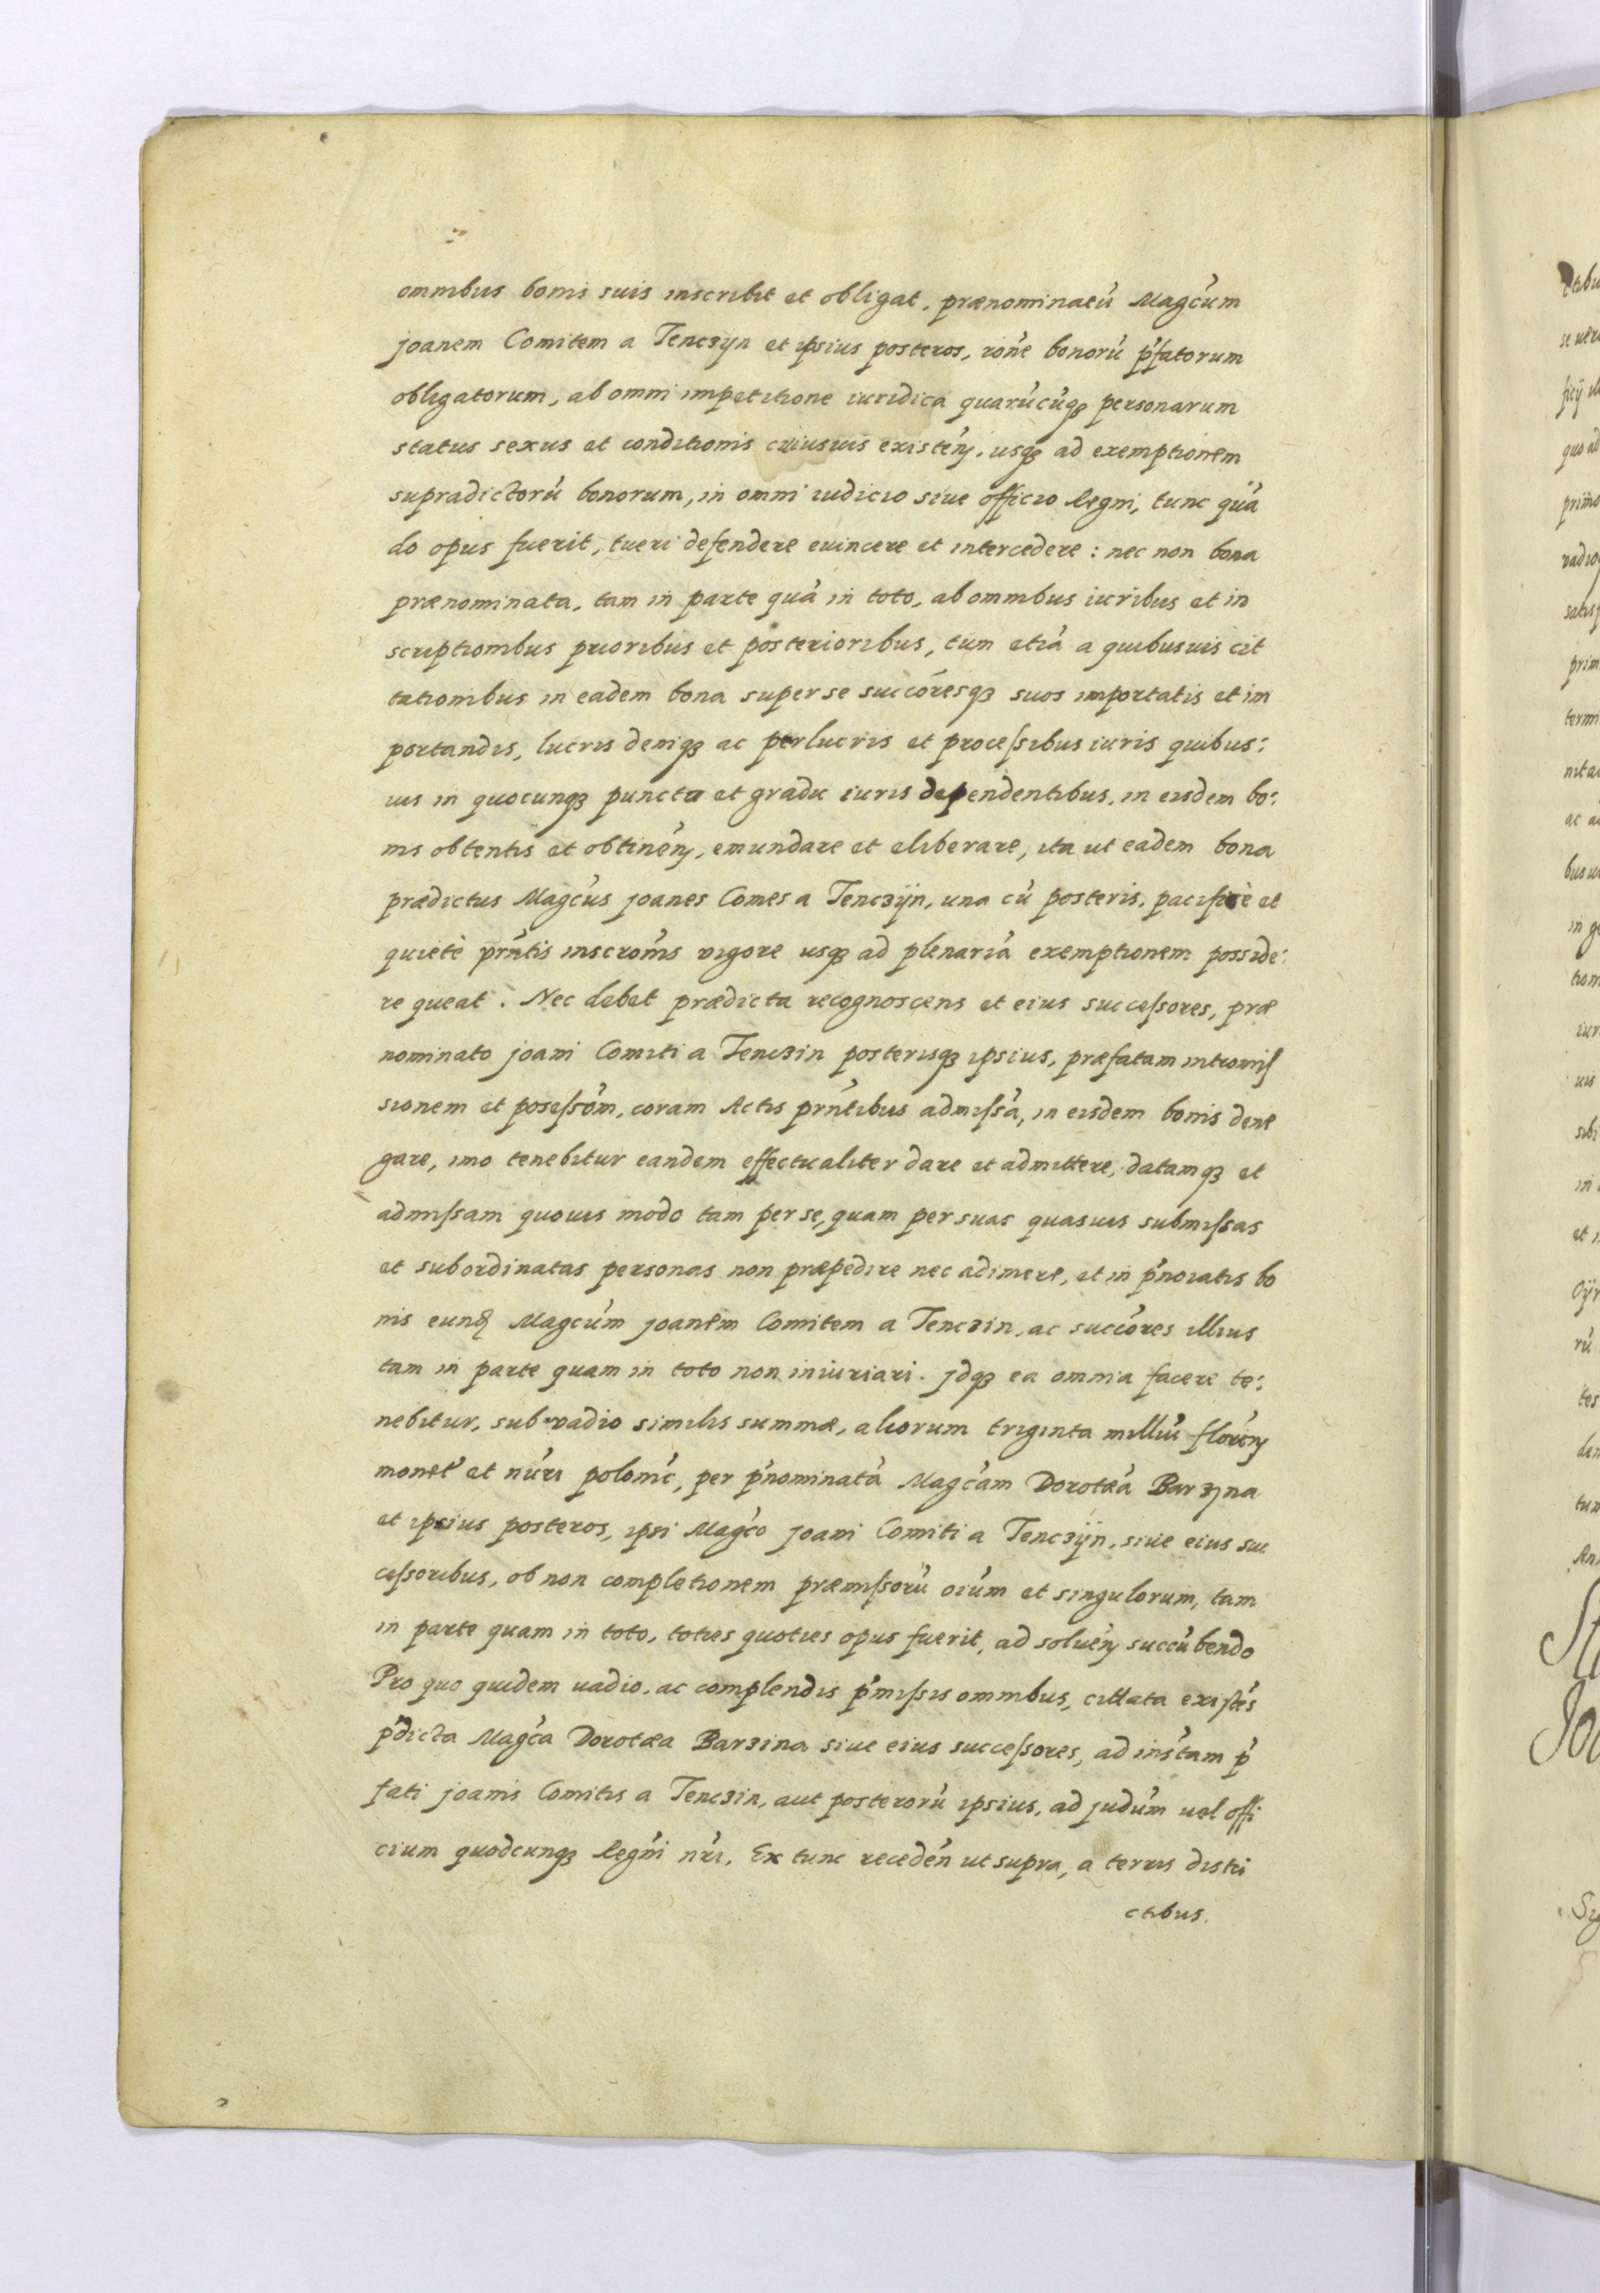 omnibus bonis suis inscribit et obligat, prænominatú Magcúm
joanem Comitem a Tenczyn et ipsius posteros, roné bonorú ṕfatorum
obligatorum, ab omni impetitione iuridica quarúcúqȝ personarum
status sexus et conditionis cuiusuis existén, usqȝ ad exemptionem
supradictorú bonorum, in omni iudicio siue officio Regni, tunc quá
do opus fuerit, tueri defendere euincere et intercedere: nec non bona
prænominata, tam in parte quá in toto, ab omnibus iuribus et in
scriptionibus prioribus et posterioribus, tum etiá a quibusuis cit
tationibus in eadem bona super se succóresqȝ suos importatis et im
portandis, lucris deniqȝ ac perlucris et proceſsibus iuris quibus:
uis in quocunqȝ puncto et gradu iuris dependentibus, in eisdem bo:
nis obtentis et obtinén, emundare et eliberare, ita ut eadem bona
prædictus Magcús joanes Comes a Tenczÿn, una cú posteris, pacificè et
quietè prńtis inscrońis vigore usqȝ ad plenariá exemptionem posside:
re queat. Nec debet prædicta recognoscens et eius succeſsores, præ
nominato joani Comiti a Tenczin posterisqȝ ipsius, præfatam intromiſ
sionem et poseſsóm, coram Actis prńtibus admiſsá, in eisdem bonis dene
gare, imo tenebitur eandem effectualiter dare et admittere, datamqȝ et
admiſsam quouis modo tam per se, quam per suas quasuis submiſsas
et subordinatas personas non præpedire nec adimere, et in ṕnoiatis bo
nis eund Magcúm joanem Comitem a Tenczin, ac succóres illius
tam in parte quam in toto non iniuriari. jdqȝ ea omnia facere te:
nebitur, sub vadio similis summæ, aliorum triginta milliú florén
monet́ et núri poloníc, per ṕnominatá Magcám Dorotæá Barzyna
et ipsius posteros, ipsi Magćo joani Comiti a Tenczÿn, siue eius suc
ceſsoribus, ob non completionem præmiſsorú oiúm et singulorum, tam
in parte quam in toto, toties quoties opus fuerit, ad soluén succúbendo
Pro quo quidem uadio, ac complendis ṕmiſsis omnibus, cittata exiſtés
ṕdicta Magća Dorotæa Barzina siue eius succeſsores, ad inśtam ṕ
fati joanis Comitis a Tenczin, aut posterorú ipsius, ad judúm uel offi
cium quodcunqȝ Regńi nŕi, Ex tunc recedén ut supra, a terris distri
ctibus.